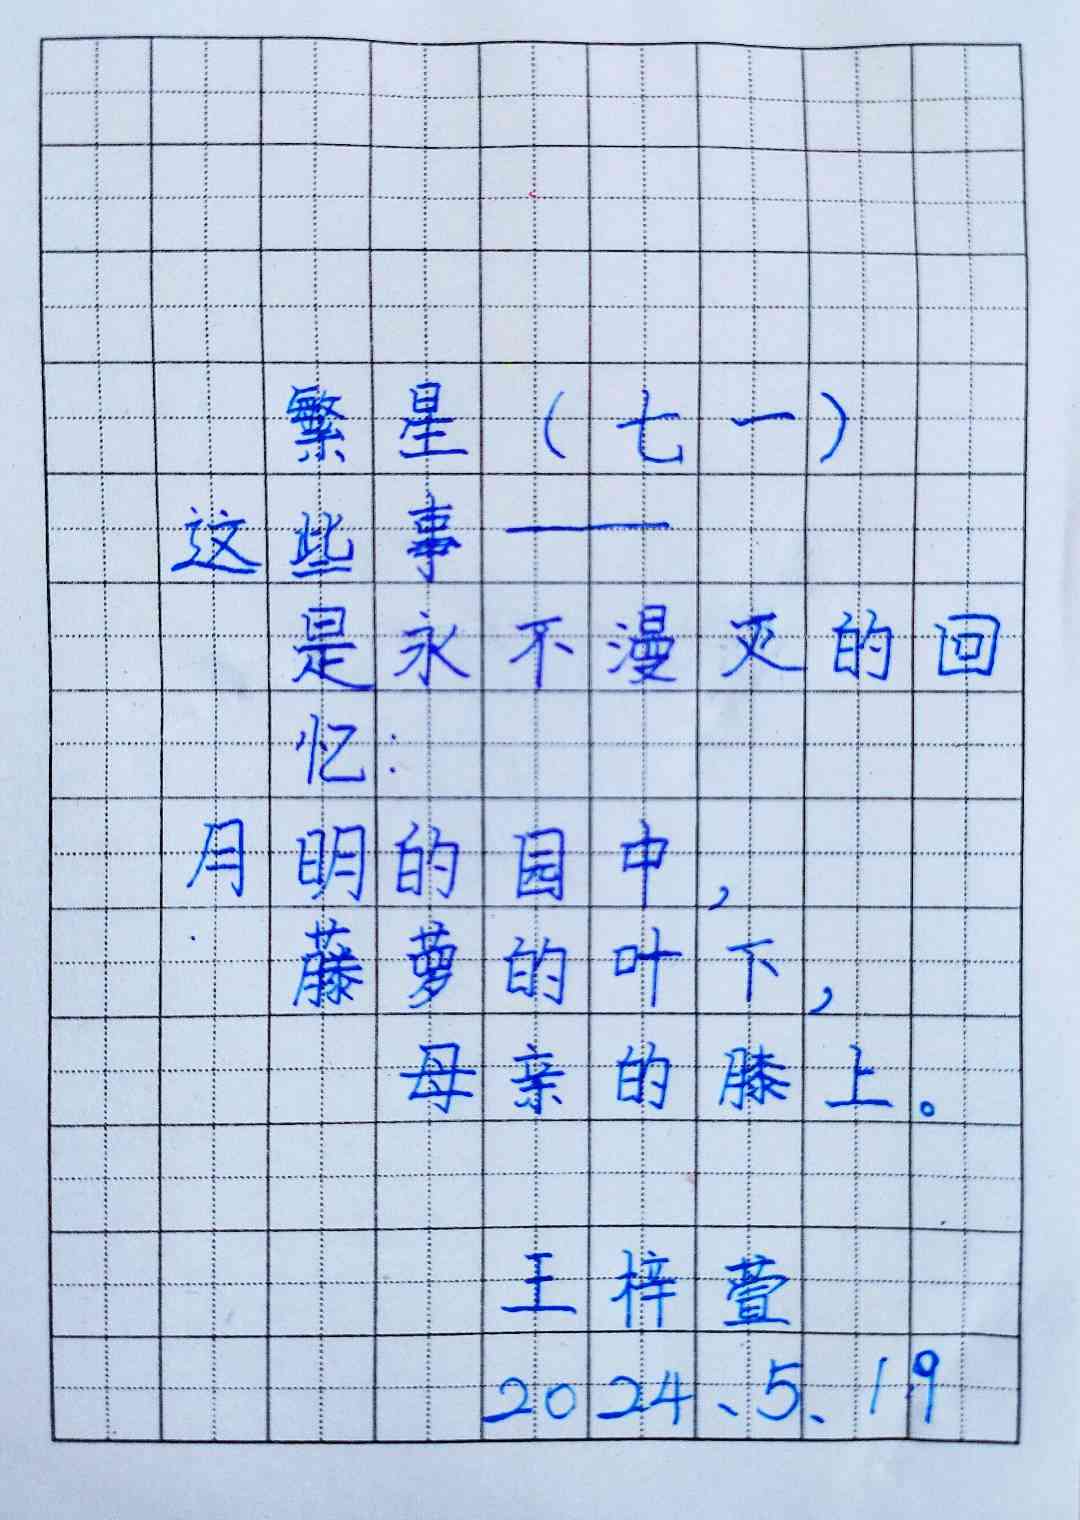 繁星(七一)
这些事——
是永不漫灭的回
忆:
月明的园中,
藤萝的叶下,
母亲的膝上。
王梓萱
2024、5、19